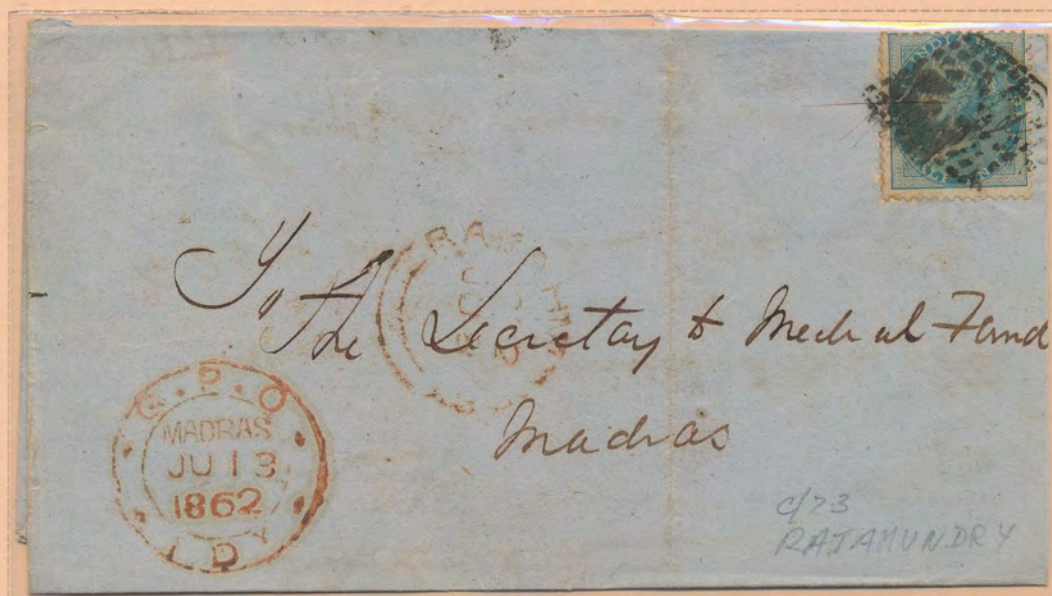 To
The Secretary to Medical Fund
Madras
G.P.O.
MADRAS
JU 13
1862
L D Y
c/73
RAJAMUNDRY